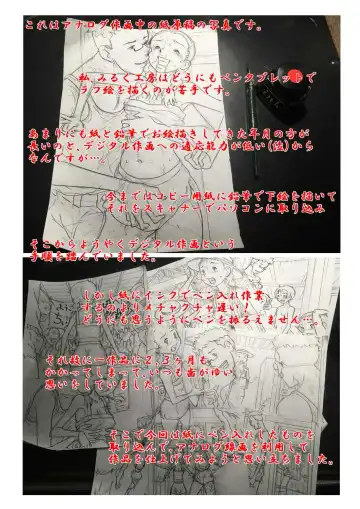 これはアナログ作画中の紙原稿の写真です。
私、みるく工房はどうにもペンタブレットで
ラフ絵を描くのが苦手です。
あまりにも紙と鉛筆でお絵描きしてきた年月の方が
長いのと、デジタル作画への適応能力が低い(笑)から
なんですが…。
今まではコピー用紙に鉛筆で下絵を描いて
それをスキャナーでパソコンに取り込み
そこからようやくデジタル作画という
手順を踏んでいました。
しかし紙にインクでペン入れ作業
するのよりメチャクチャ遅い!
どうにも思うようにペンを振るえません…。
それ故に一作品に2、3ヶ月も
かかってしまって、いつも歯がゆい
思いをしていました。
そこで今回は紙にペン入れしたものを
取り込んで、アナログ線画を利用して
作品を仕上げてみようと思い立ちました。